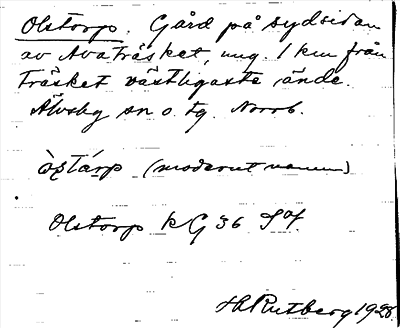 Olstorp. Gård på sydsidan
av Avaträsket, ung. 1 km från
träsket västligaste ände.
Älvsby sn o. tg. Norrb.
(modernt namn)
Olstorp kG 36 Sof.
H Rutberg 1928